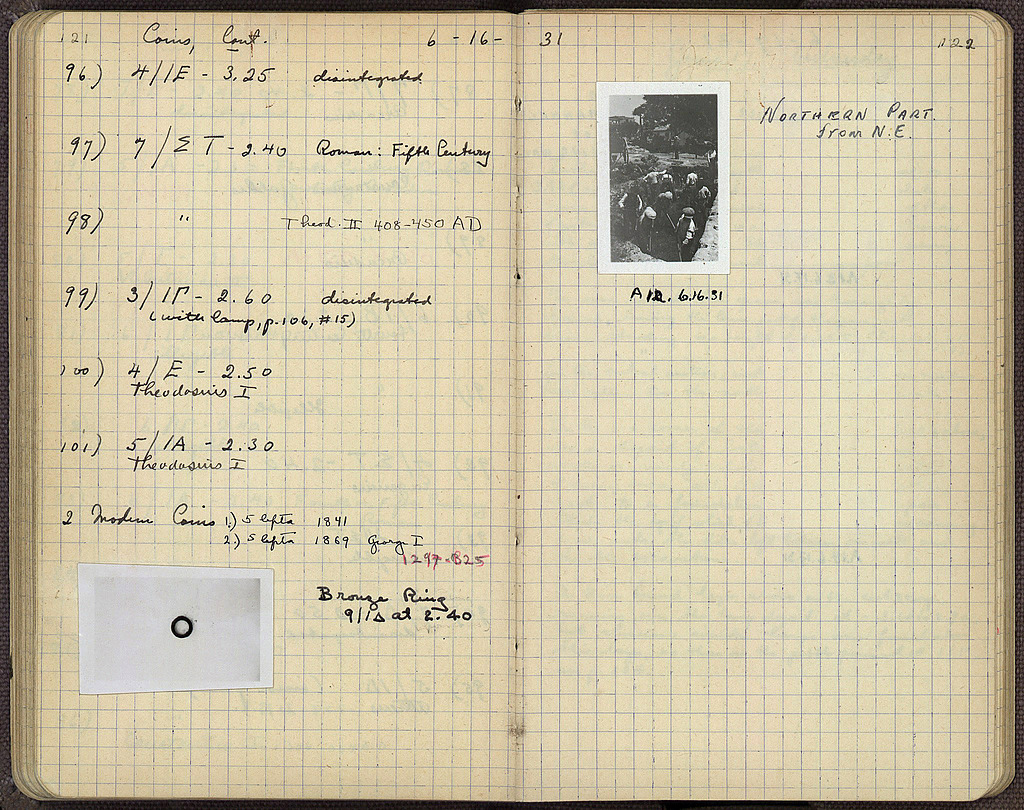 121 Coins, Cont. 6 - 16 - 31
96.) 4/IE - 3.25 disintegrated
97) 7/ΣT - 2.40 Roman: Fifth Century
98) " Theod. II 408-450 AD
99) 3/IΓ - 2.60 disintegrated
(with lamp, p. 106, #15)
100) 4/E - 2.50
Theodosius I
101) 5/IA - 2.30
Theodosius I
2 Modern Coins 1.) 5 lepta 1841
2.) 5 lepta 1869 George I
1297-825
Bronze Ring
9/IΔ at 2.40
122
NORTHERN PART.
from N.E.
6.16.31